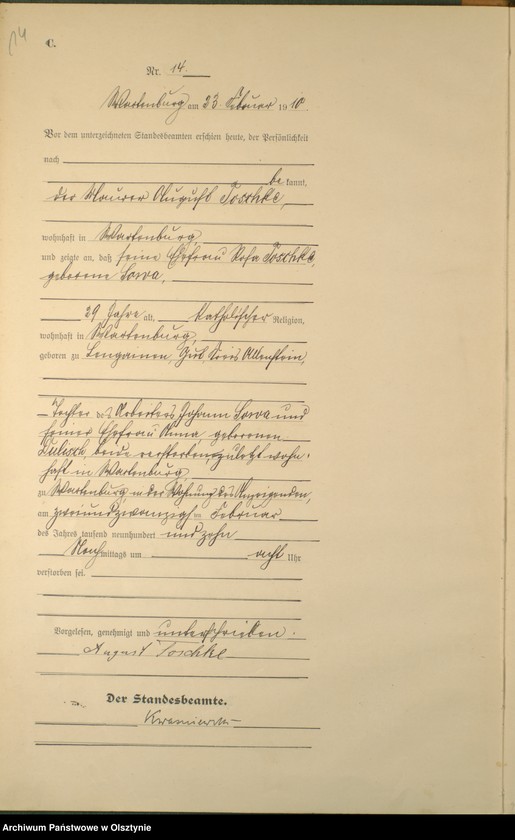 14
C.
Nr. 14.
Wartenburg am 23. Februar 1910
Vor dem unterzeichneten Standesbeamten erschien heute, der Persönlichkeit
nach
be kannt,
der Maurer August Toschke,
wohnhaft in Wartenburg,
und zeigte an, daß seine Ehefrau Rosa Toschke,
geborene Sowa,
29 Jahre alt, Katholischer Religion,
wohnhaft in Wartenburg,
geboren zu Lengainen, Gut, Kreis Allenstein,
Tochter des Arbeiters Johann Sowa und
seiner Ehefrau Anna, geborenen
beide verstorben, zuletzt wohn-
haft in Wartenburg,
zu Wartenburg, in der Wohnung des Anzeigenden,
am zweiundzwanzigsten Februar
des Jahres tausend neunhundert und zehn
Nach mittags um acht Uhr
verstorben sei.
Vorgelesen, genehmigt und unterschrieben.
August Toschke
Der Standesbeamte.
Archiwum Państwowe w Olsztynie